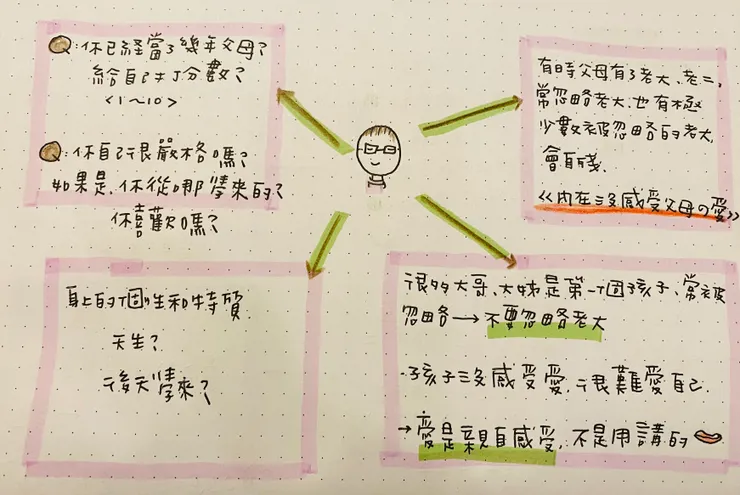 Q:你已經當了幾年父母?
給自己打分數?
<1～10>
Q:你自己很嚴格嗎?
如果是.你從哪學來的?
你喜歡嗎?
有時父母有了老大、老二,
常忽略老大.也有極
少數被忽略的老大,
會自殘.
《內在沒感受父母の愛》
身上的個性和特質
天生?
後天學來?
很多大哥、大姊是第一個孩子、常被
忽略→不要忽略老大
·孩子沒感受愛.很難愛自己.
→愛是親自感受,不是用講的